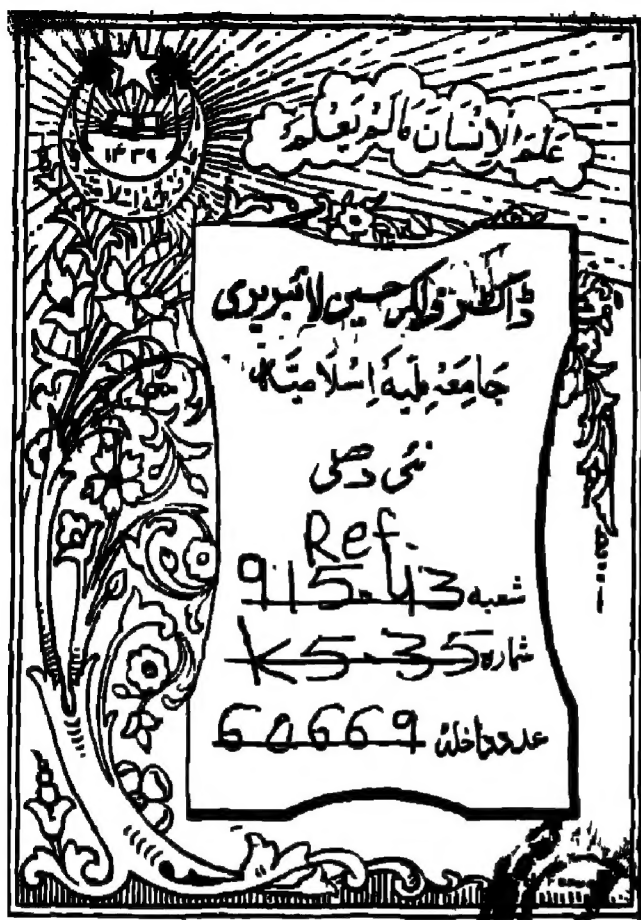 عَلَّمَ الْإِنْسَانَ مَا لَمْ يَعْلَمْ
۱۳۳۹
ڈاکٹر ذاکر حسین لائبریری
جَامِعَہ مِلّیَہ اِسْلَامیَہ
نئی دھلی
Ref.
شعبہ 915.43
شمارہ K5.35
عدد داخلہ 60669